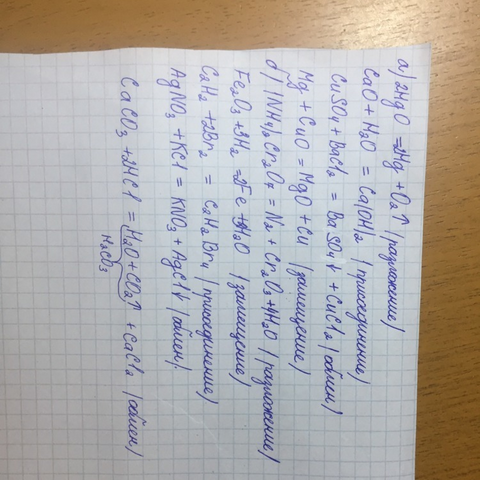 а) 2HgO = 2Hg + O₂↑ (разложение)
CaO + H₂O = Ca(OH)₂ (присоединение)
CuSO₄ + BaCl₂ = BaSO₄↓ + CuCl₂ (обмен)
Mg + CuO = MgO + Cu (замещение)
б) (NH₄)₂Cr₂O₇ = N₂ + Cr₂O₃ + 4H₂O (разложение)
Fe₂O₃ + 3H₂ = 2Fe + 3H₂O (замещение)
C₂H₂ + 2Br₂ = C₂H₂Br₄ (присоединение)
AgNO₃ + KCl = KNO₃ + AgCl↓ (обмен)
CaCO₃ + 2HCl = H₂O + CO₂↑ + CaCl₂ (обмен)
H₂CO₃